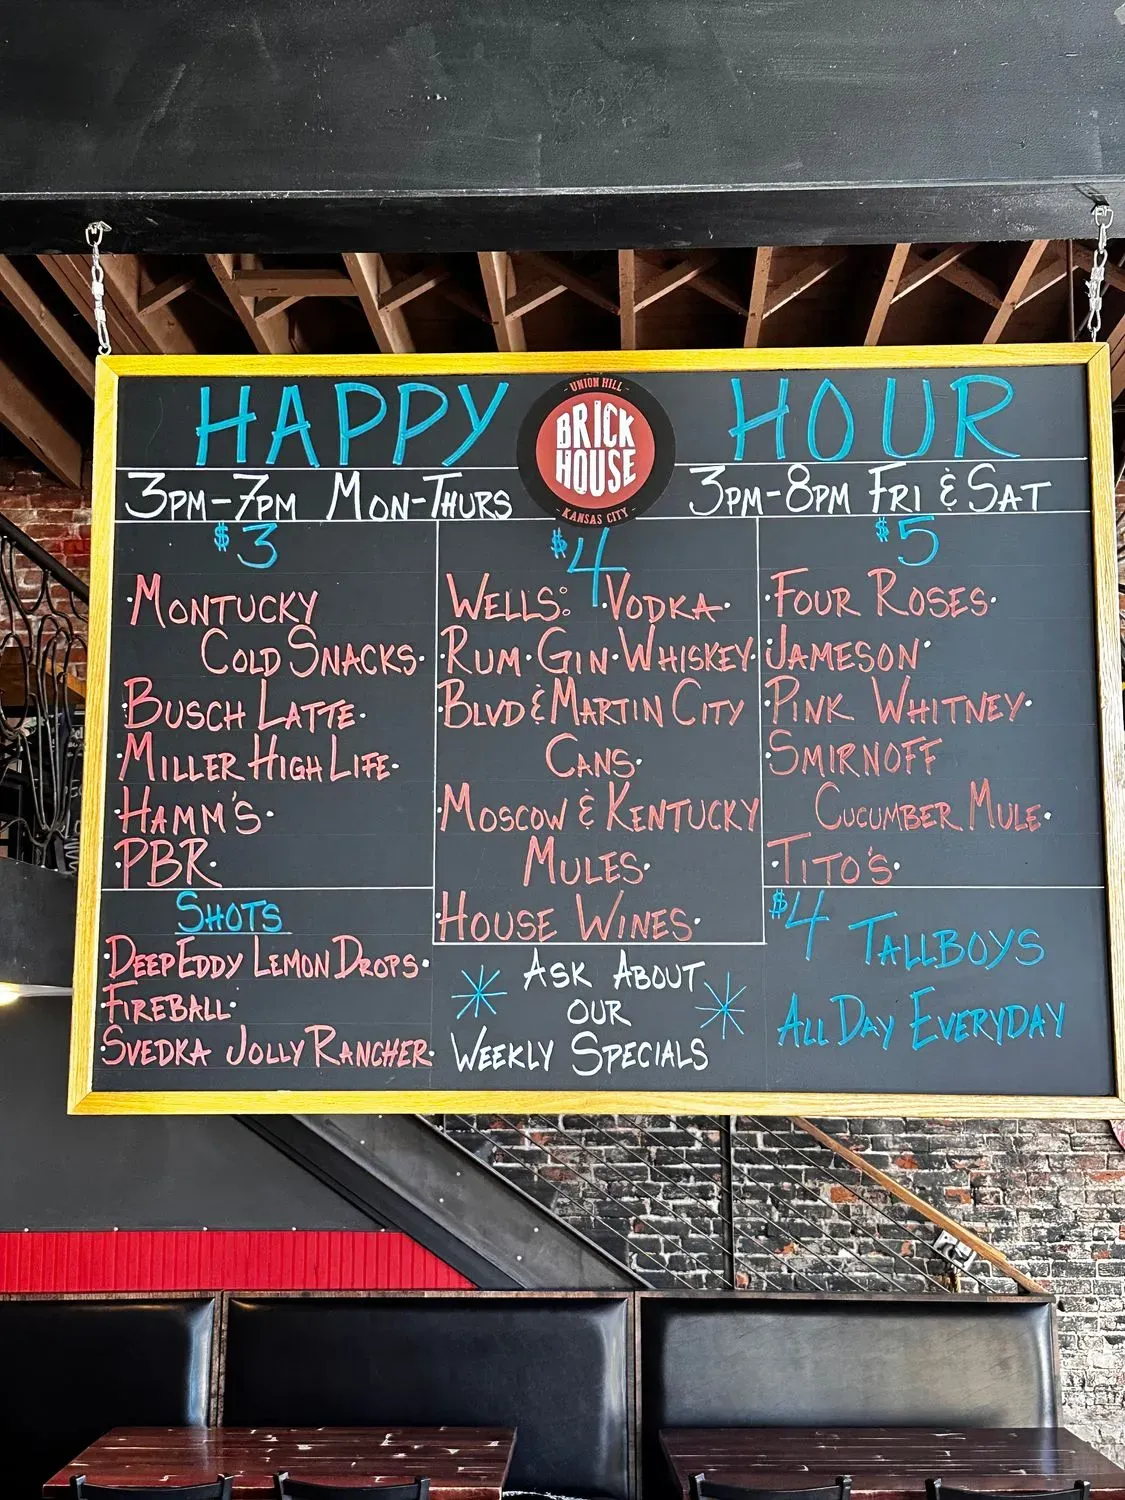 HAPPY HOUR
UNION HILL
BRICK
HOUSE
KANSAS CITY
3PM-7PM MON-THURS
3PM-8PM FRI & SAT
$3
·MONTUCKY
COLD SNACKS·
·BUSCH LATTE·
·MILLER HIGH LIFE·
·HAMM'S·
·PBR·
SHOTS
·DEEP EDDY LEMON DROPS·
·FIREBALL·
·SVEDKA JOLLY RANCHER·
$4
WELLS: ·VODKA·
·RUM·GIN·WHISKEY·
·BLVD & MARTIN CITY
CANS·
·MOSCOW & KENTUCKY
MULES·
·HOUSE WINES·
ASK ABOUT
OUR
WEEKLY SPECIALS
$5
·FOUR ROSES·
·JAMESON·
·PINK WHITNEY·
·SMIRNOFF
CUCUMBER MULE·
·TITO'S·
$4 TALLBOYS
ALL DAY EVERYDAY